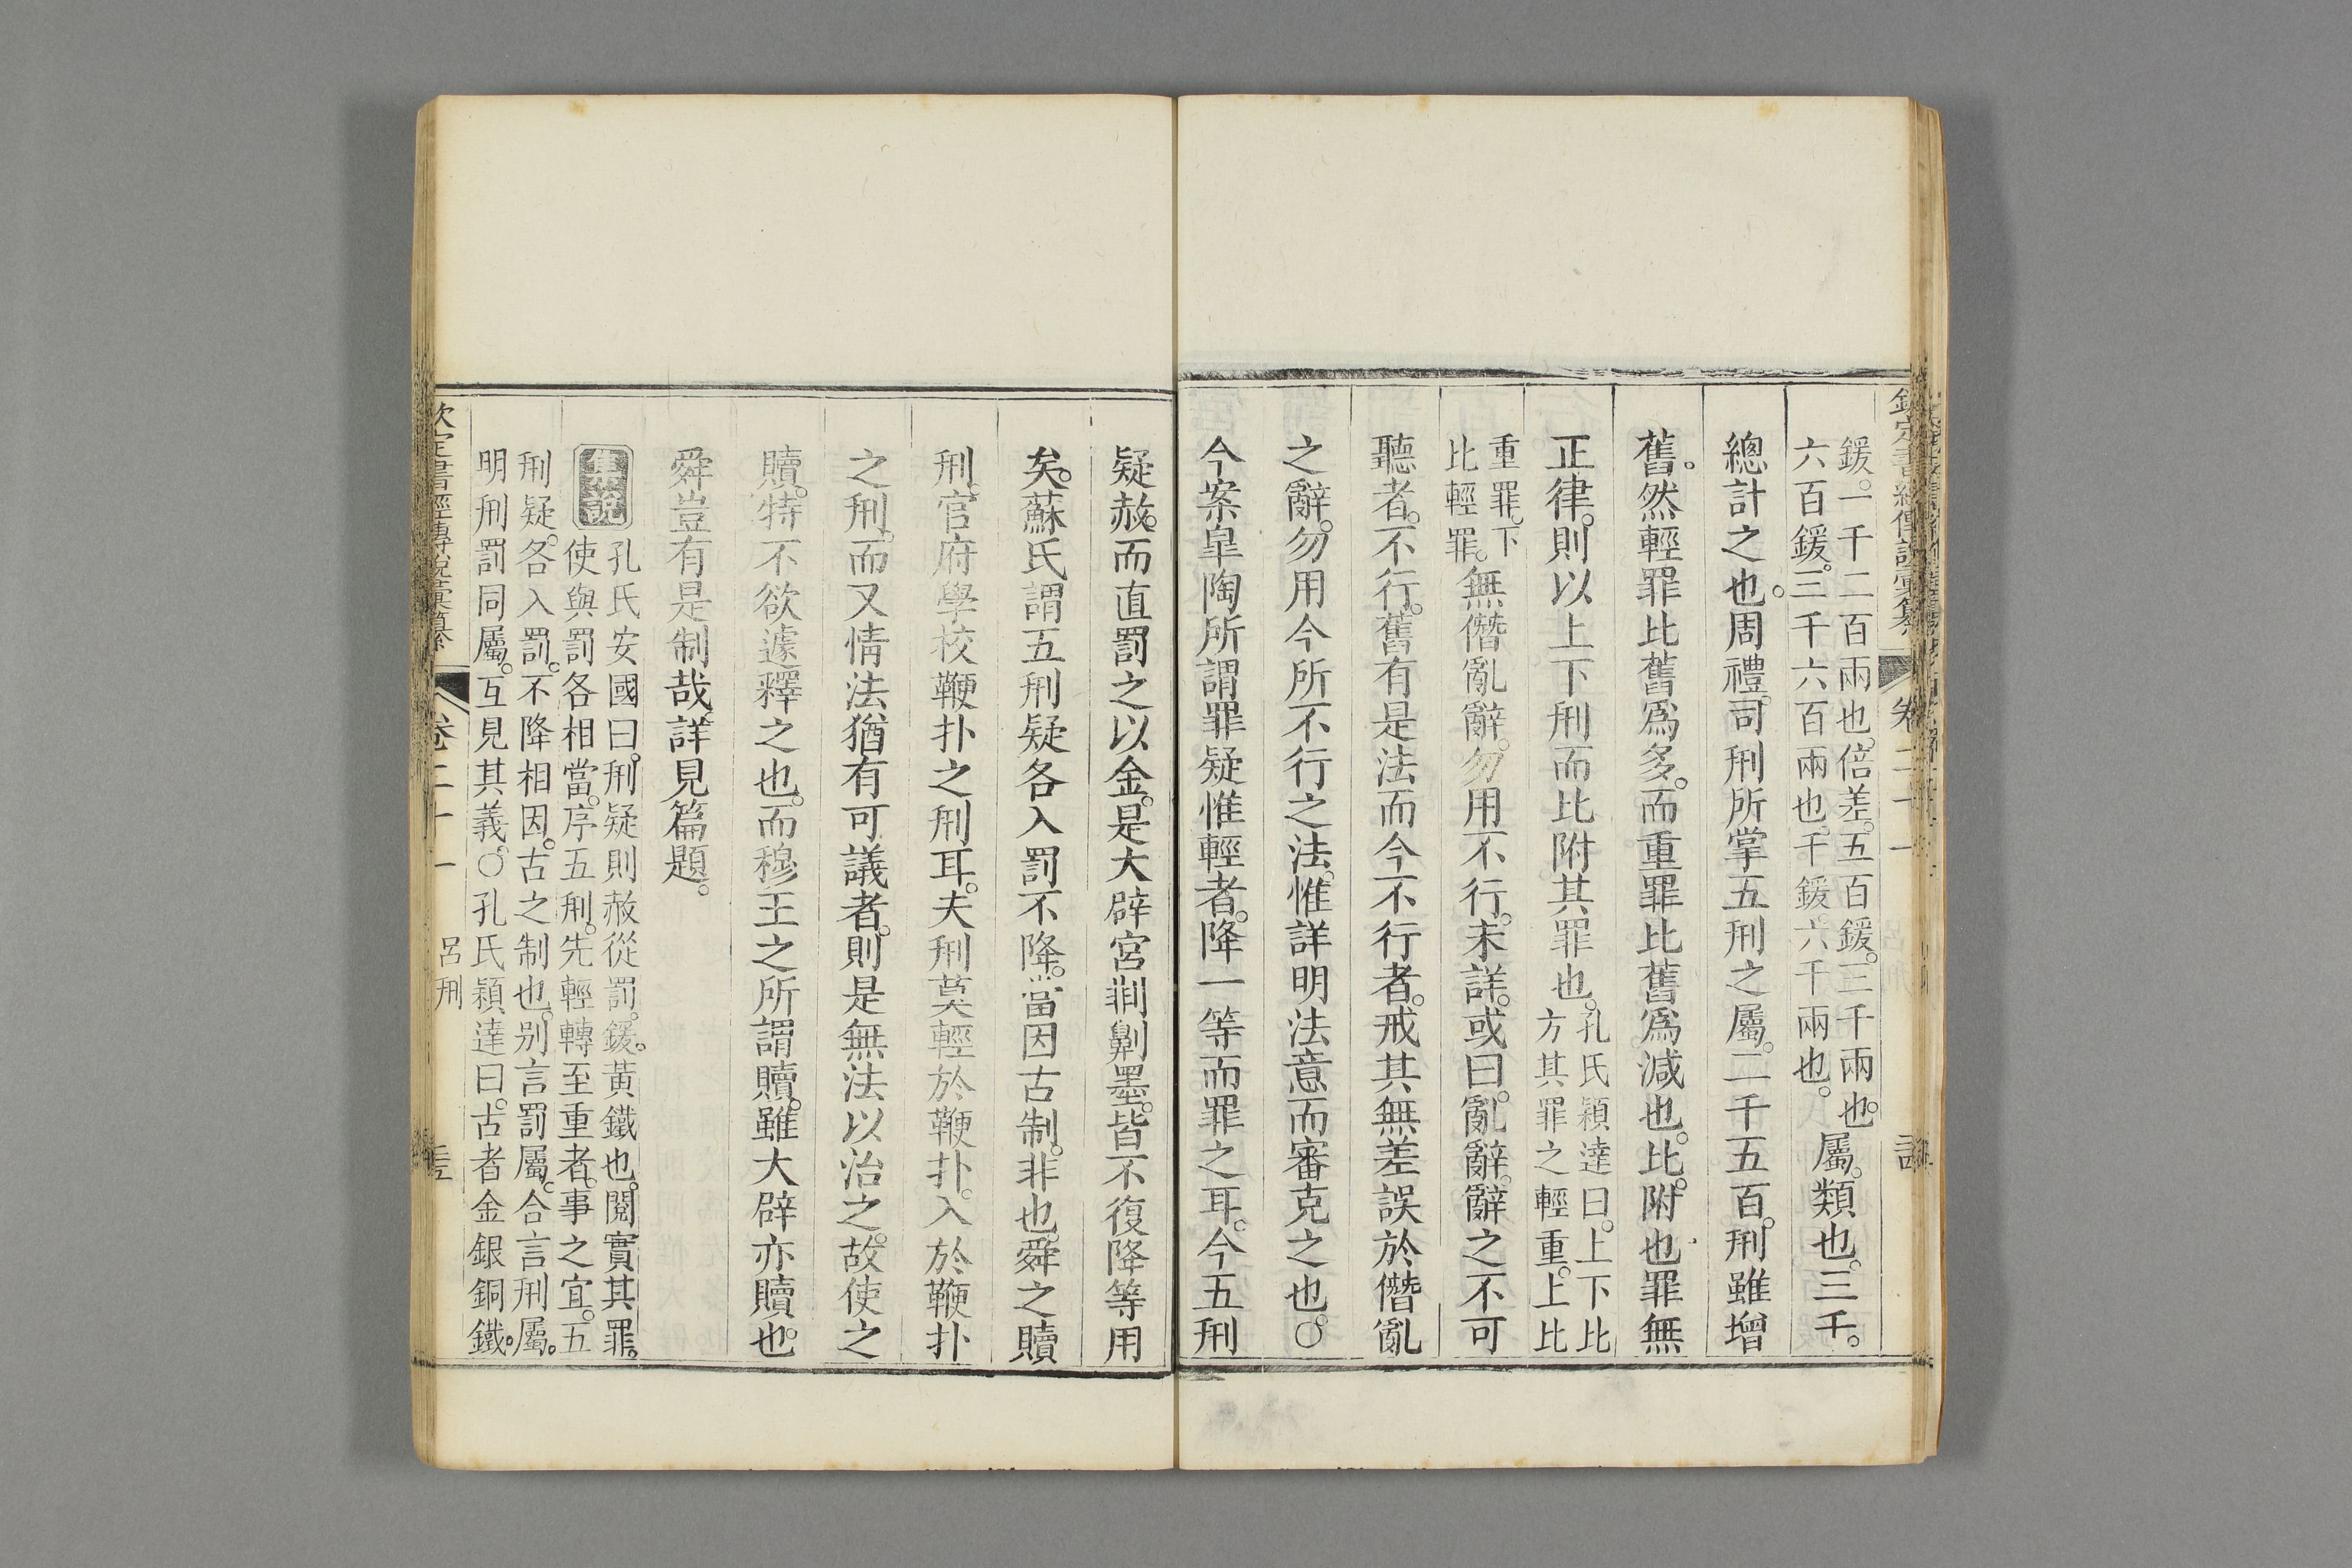 鍰。一千二百兩也。倍差。五百鍰。三千兩也。
六百鍰。三千六百兩也。千鍰。六千兩也。
屬。類也。三千。
總計之也。周禮。司刑所掌五刑之屬。二千五百。刑雖增
舊。然輕罪比舊爲多。而重罪比舊爲減也。比。附也。罪無
正律。則以上下刑而比附其罪也。
孔氏穎達曰。上下比
方其罪之輕重。上比
重罪。下
比輕罪。
無僭亂辭。勿用不行。未詳。或曰。亂辭。辭之不可
聽者。不行。舊有是法而今不行者。戒其無差誤於僭亂
之辭。勿用今所不行之法。惟詳明法意而審克之也。○
今案皐陶所謂罪疑惟輕者。降一等而罪之耳。今五刑
疑赦。而直罰之以金。是大辟宮剕劓墨。皆不復降等用
矣。蘇氏謂五刑疑各入罰不降。當因古制。非也。舜之贖
刑。官府學校鞭扑之刑耳。夫刑莫輕於鞭扑。入於鞭扑
之刑。而又情法猶有可議者。則是無法以治之。故使之
贖。特不欲遽釋之也。而穆王之所謂贖。雖大辟亦贖也。
舜豈有是制哉。詳見篇題。
集說
孔氏安國曰。刑疑則赦從罰。鍰。黃鐵也。閱實其罪。
使與罰各相當。序五刑。先輕轉至重者。事之宜。五
刑疑。各入罰。不降相因。古之制也。別言罰屬。合言刑屬。
明刑罰同屬。互見其義。○孔氏穎達曰。古者金銀銅鐵。
欽定書經傳說彙纂
卷二十一
呂刑